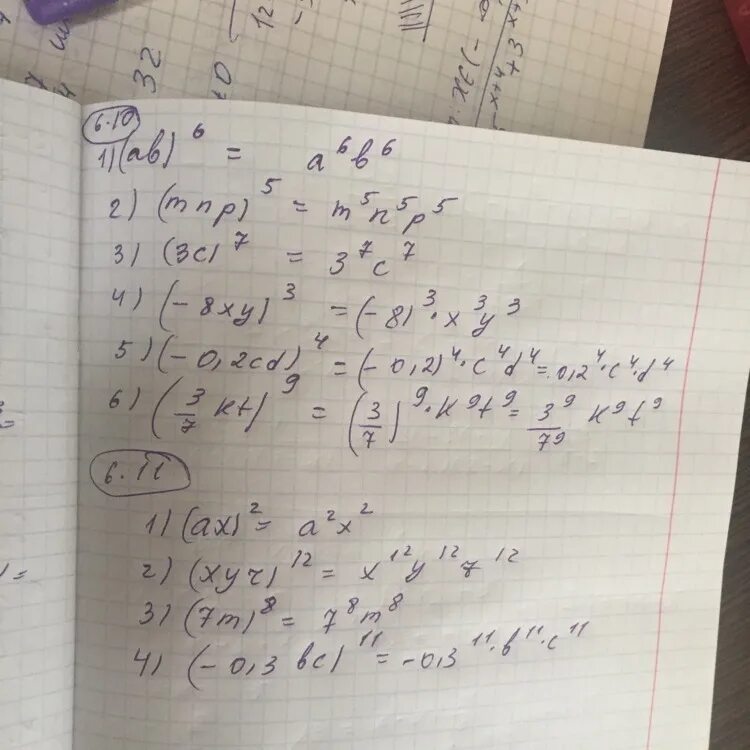 32
12
6.10
1) (ab)⁶ = a⁶b⁶
2) (mnp)⁵ = m⁵n⁵p⁵
3) (3c)⁷ = 3⁷c⁷
4) (-8xy)³ = (-8)³·x³y³
5) (-0,2cd)⁴ = (-0,2)⁴·c⁴d⁴ = 0,2⁴·c⁴·d⁴
6) (3/7 kt)⁹ = (3/7)⁹·k⁹t⁹ = 3⁹/7⁹ k⁹t⁹
6.11
1) (ax)² = a²x²
2) (xyz)¹² = x¹²y¹²z¹²
3) (7m)⁸ = 7⁸m⁸
4) (-0,3 bc)¹¹ = -0,3¹¹·b¹¹·c¹¹